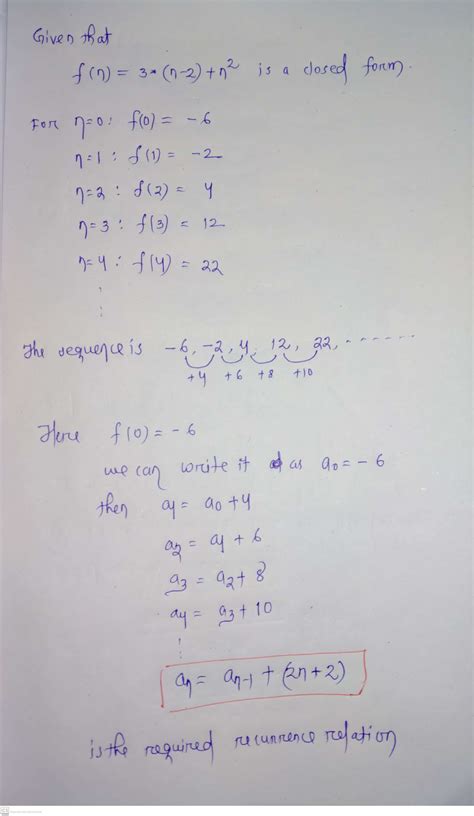 Given that
f(n) = 3*(n-2)+n² is a closed form.
For n=0: f(0) = -6
n=1: f(1) = -2
n=2: f(2) = 4
n=3: f(3) = 12
n=4: f(4) = 22
⋮
The sequence is -6, -2, 4, 12, 22, ------
+4 +6 +8 +10
Here f(0) = -6
we can write it as a₀ = -6
then a₁ = a₀ + 4
a₂ = a₁ + 6
a₃ = a₂ + 8
a₄ = a₃ + 10
⋮
aₙ = aₙ₋₁ + (2n+2)
is the required recurrence relation